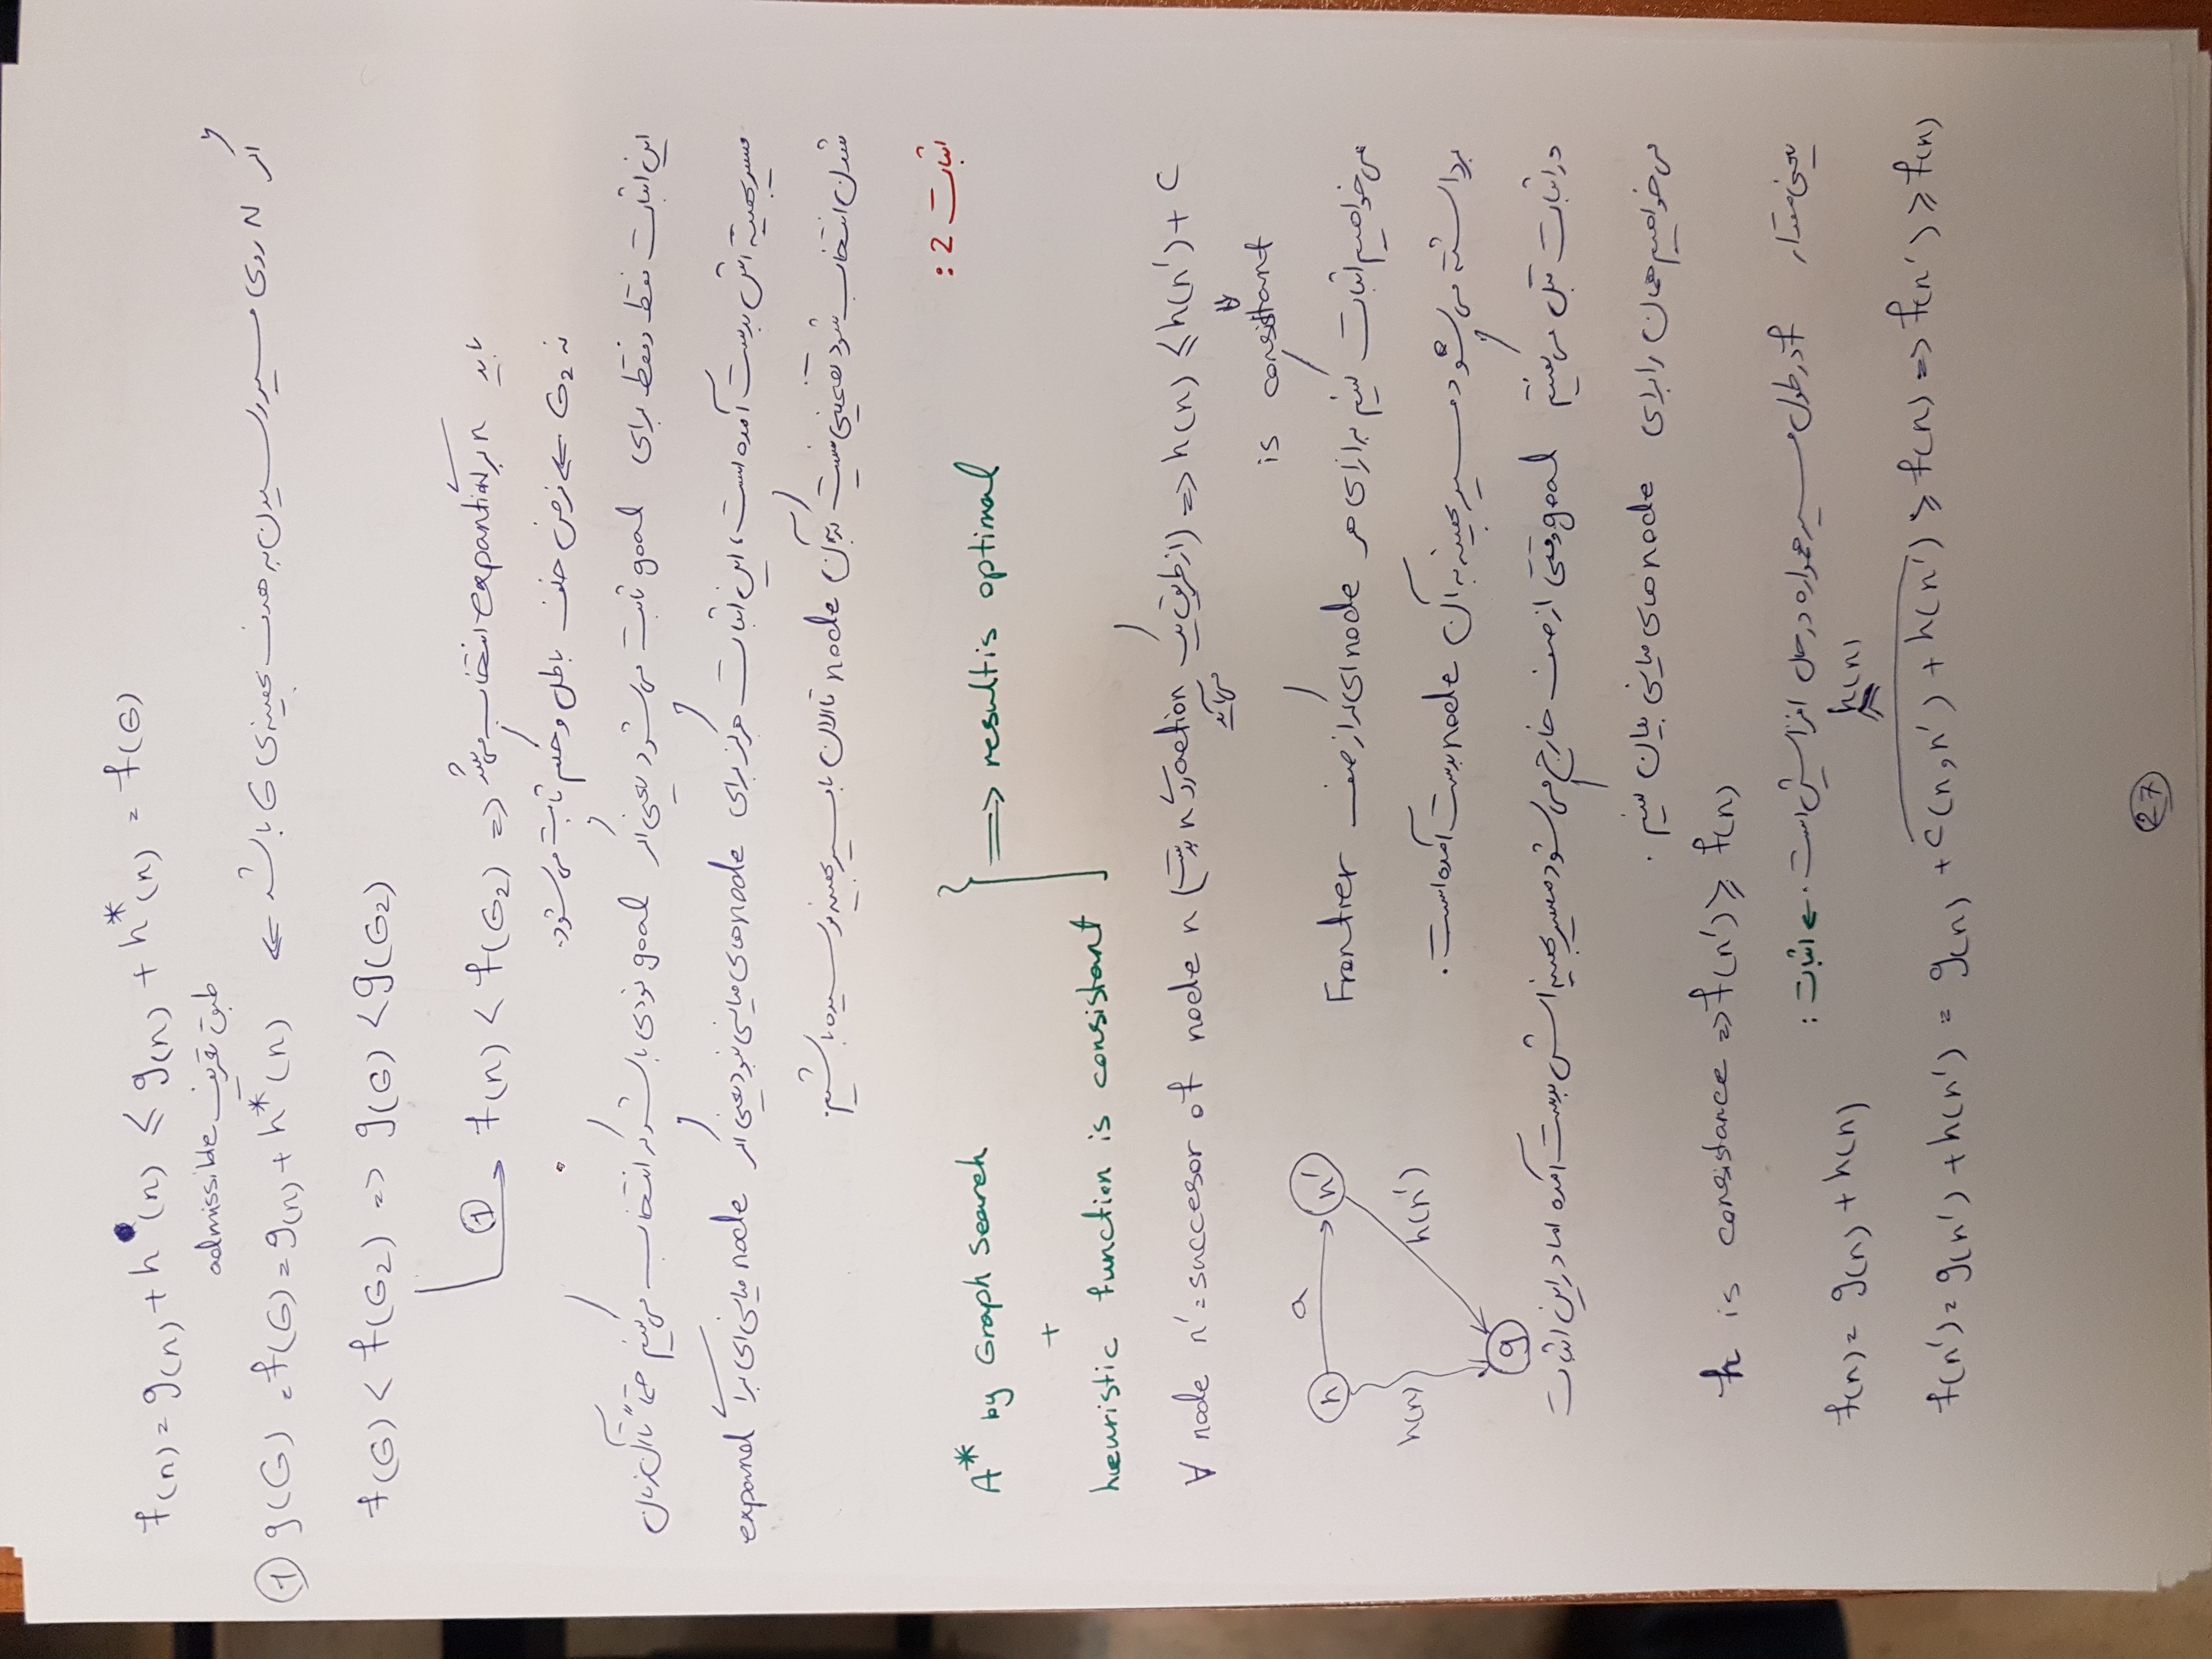 f(n) = g(n) + h(n) ≤ g(n) + h*(n) = f(G)
طبق تعریف admissible
اگر N روی مسیر رسیدن به هدف بهینه‌ی G باشد ⇐ g(G) = f(G) = g(n) + h*(n) ①
f(G) < f(G2) => g(G) < g(G2)
① f(n) < f(G2) => باید n برای expantion انتخاب می‌شد
نه G2 ⇐ فرض خلف باطل و حکم ثابت می‌شود.
این اثبات فقط و فقط برای goal ثابت می‌شود یعنی اگر goal نودی باشد که انتخاب می‌کنیم حتماً تا آن زمان
مسیر بهینه اش بدست آمده است، این اثبات هرگز برای node های میانی نبود یعنی اگر node میانی ای برای expand
شدن انتخاب شود تضمینی نیست که به آن node تا الان با مسیر بهینه رسیده باشیم.
اثبات 2 :
A* by Graph Search
+
heuristic function is consistant
} => result is optimal
∀ node n' = succesor of node n (از طریق یک action از n بدست می‌آید) => h(n) ≤ h(n') + c
⇓
is consistant
n a n'
h(n) h(n')
g
می‌خواهیم اثبات کنیم به ازای هر node ای که از صف Frontier
برداشته می‌شود مسیر بهینه به آن node بدست آمده است.
در اثبات قبل می‌گفتیم goal وقتی از صف خارج می‌شود مسیر بهینه اش بدست آمده اما در این اثبات
می‌خواهیم همان را برای node های میانی بیان کنیم.
h is consistance => f(n') ≥ f(n)
یعنی مقدار f در طول مسیر همواره در حال افزایش است. ⇐ اثبات :
f(n) = g(n) + h(n)
h(n)
f(n') = g(n') + h(n') = g(n) + c(n,n') + h(n') ≥ f(n) => f(n') ≥ f(n)
27